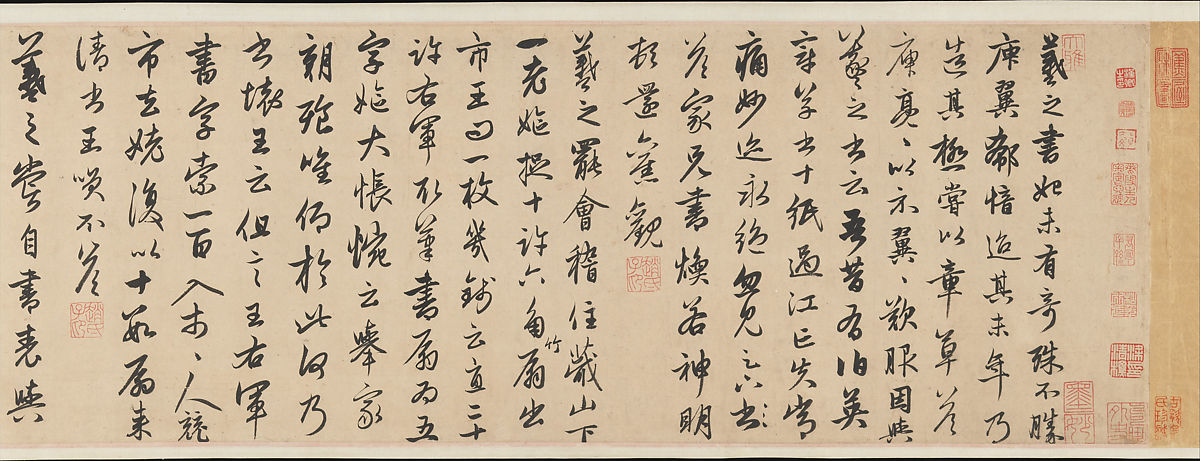 羲之書始未有奇殊不勝
庾翼郗愔迨其末年乃
造其極嘗以章草答
庾亮、以示翼、歎服因與
羲之書云吾昔有伯英
章草書十紙過江亡失常
痛妙迹永絕忽見足下書、
答家兄書煥若神明
頓還舊觀
趙氏子昂
羲之罷會稽住蕺山下
一老嫗捉十許六角竹扇出
市王問一枚幾錢云直二十
許右軍取筆書扇為五
字嫗大悵惋云舉家
朝飡唯仰於此何乃
書壞王云但言王右軍
書字索一百入市、人競
市去姥復以十數扇來
請書王笑不答
趙氏子昂
羲之嘗自書表與